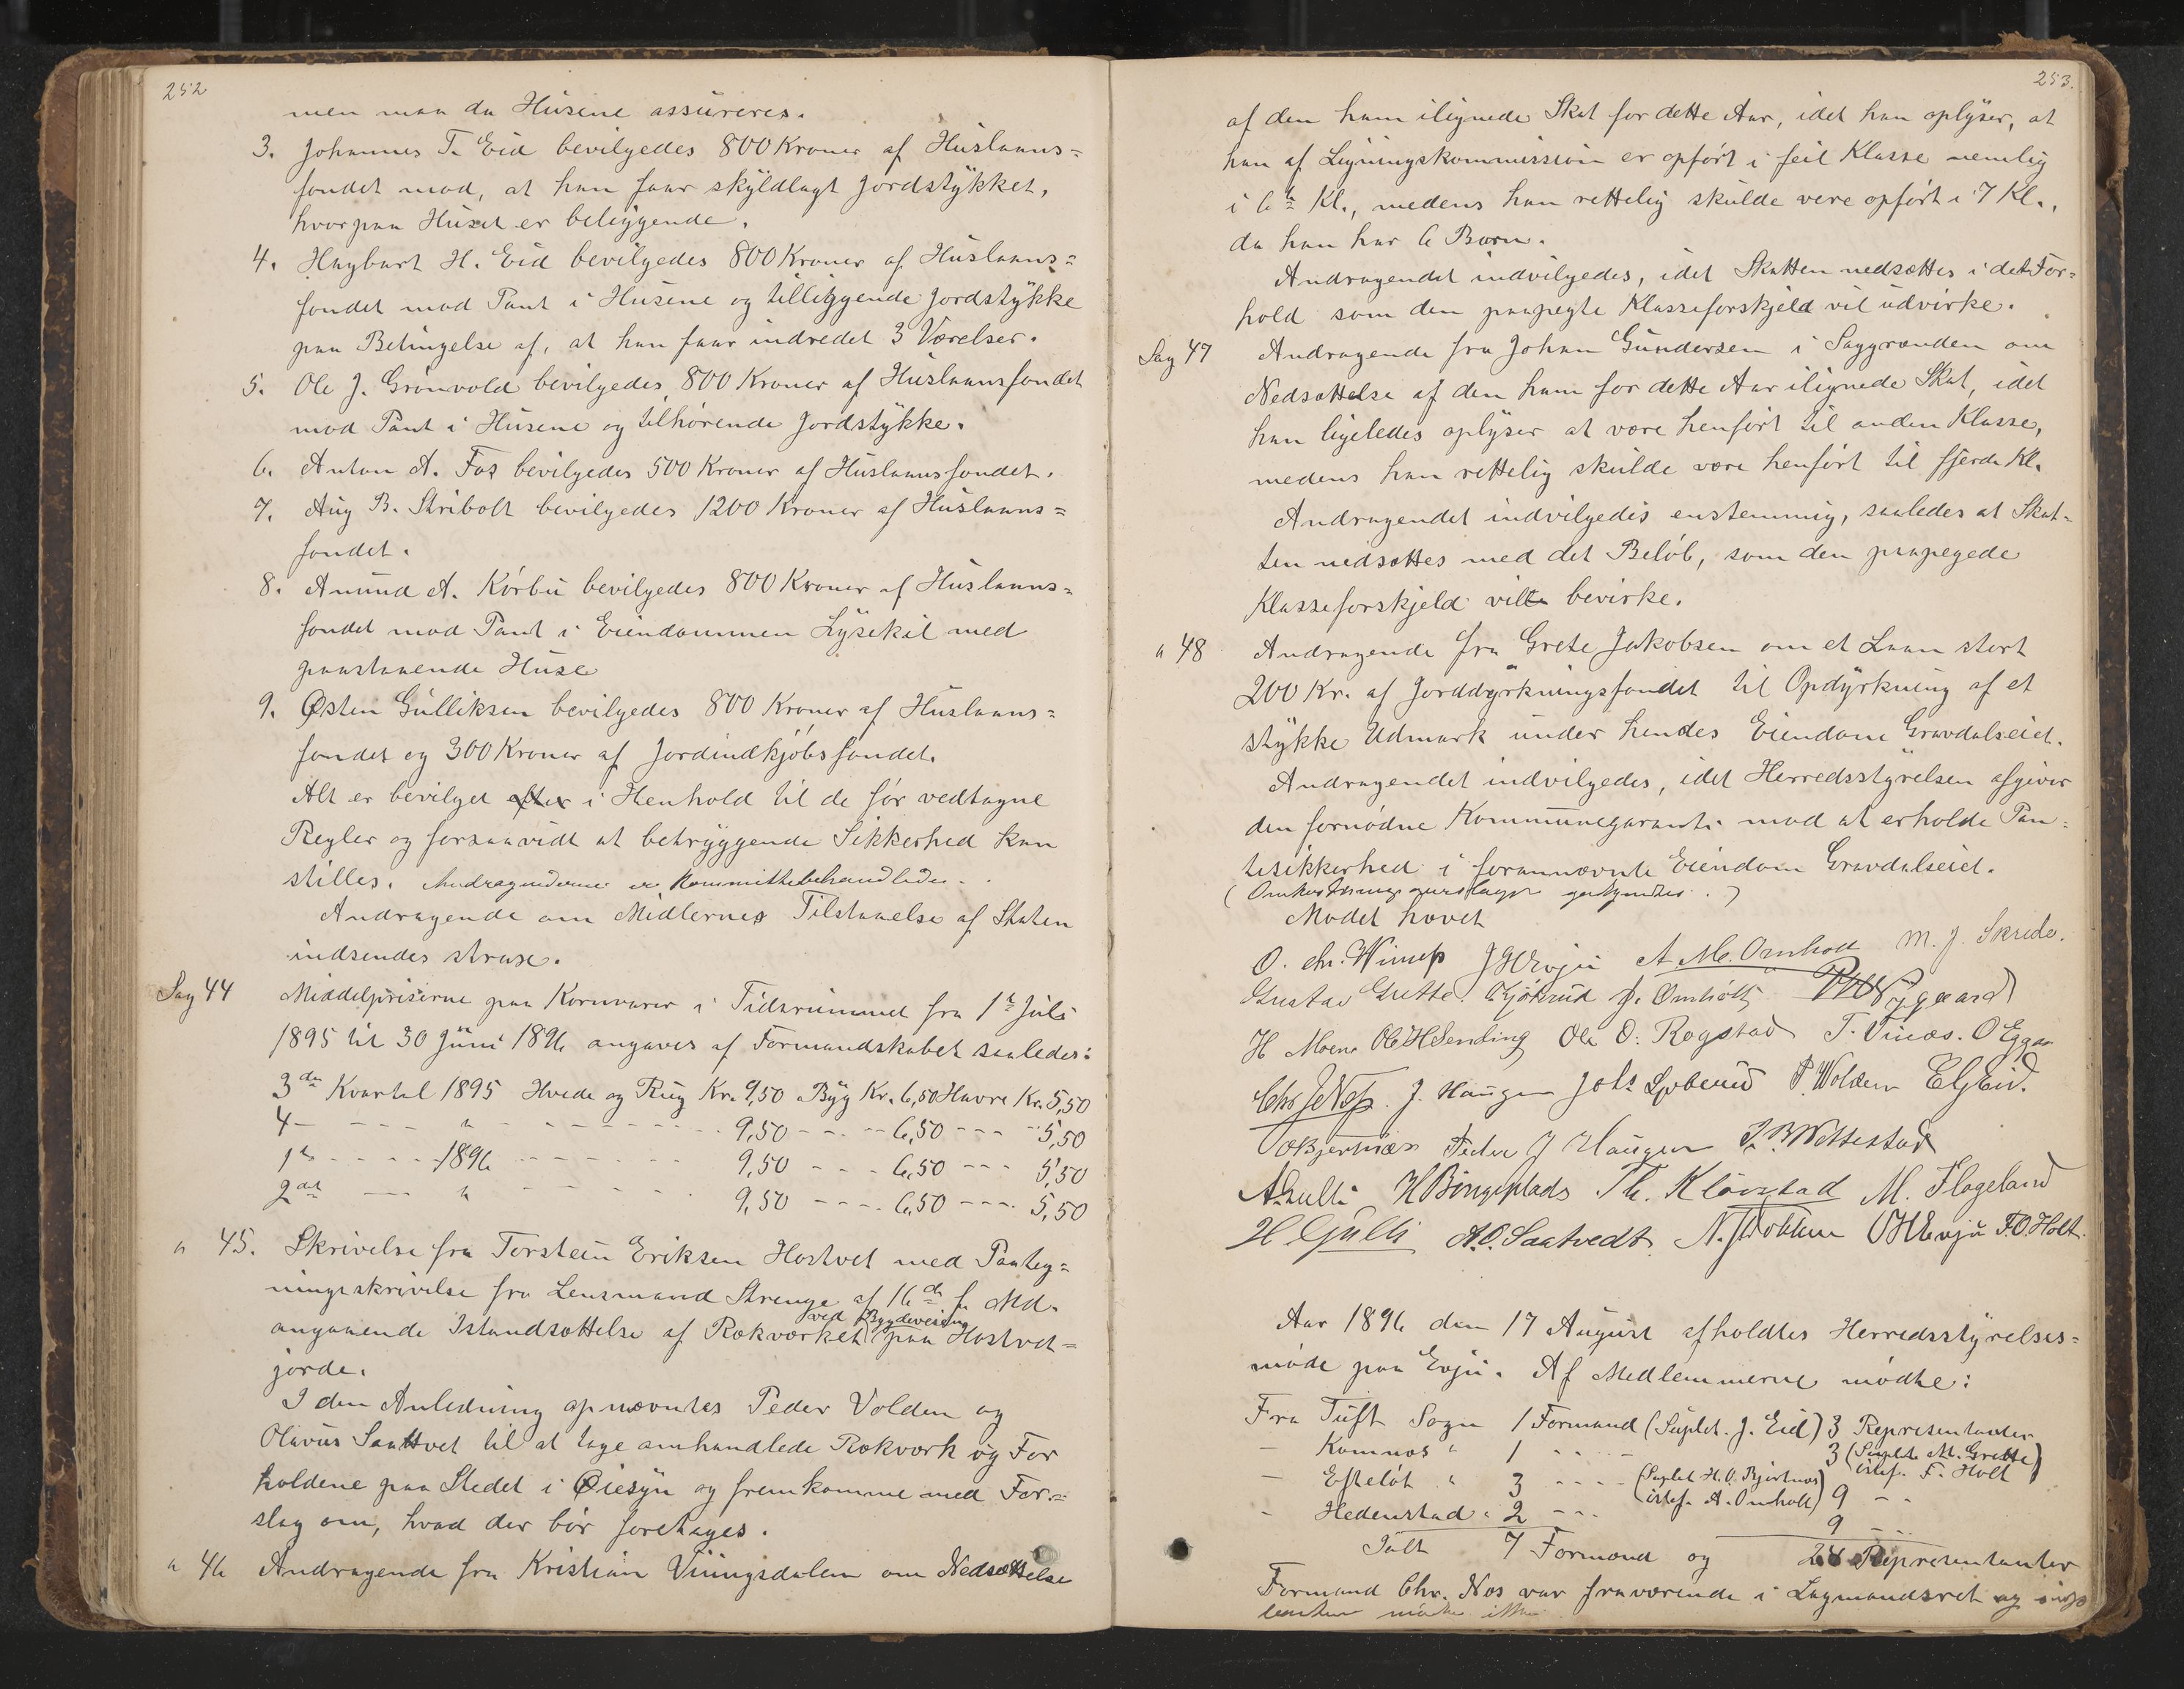 252
men maa da Husene assureres.
3. Johannes T. Eid bevilgedes 800 Kroner af Huslaans=
fondet mod, at han faar skyldlagt Jordstykket,
hvorpaa Huset er beliggende.
4. Hagbart H. Eid bevilgedes 800 Kroner af Huslaans=
fondet mod Pant i Husene og tilliggende Jordstykke
paa Betingelse af, at han faar indredet 3 Værelser.
5. Ole J. Grønvold bevilgedes 800 Kroner af Huslaansfondet
mod Pant i Husene og tilhørende Jordstykke.
6. Anton A. Fos bevilgedes 500 Kroner af Huslaansfondet.
7. Aug B. Skribolt bevilgedes 1200 Kroner af Huslaans=
fondet.
8. Amund A. Kørbu bevilgedes 800 Kroner af Huslaans=
fondet mod Pant i Eiendommen Lysekil med
paastaaende Huse
9. Østen Gulliksen bevilgedes 800 Kroner af Huslaans=
fondet og 300 Kroner af Jordindkjøbsfondet.
Alt er bevilget efter i Henhold til de før vedtagne
Regler og forsaavidt at betryggende Sikkerhed kan
stilles. Andragenderne er Kommittebehandlede.
Andragende om Midlernes Tilstaaelse af Staten
indsendes strax.
Sag 44 Middelpriserne paa Kornvarer i Tidsrummet fra 1ste Juli
1895 til 30 Juni 1896 angaves af Formandskabet saaledes:
3die Kvartal 1895 Hvede og Rug Kr. 9,50 Byg Kr. 6,50 Havre Kr. 5,50
4 - - - - " - - - - 9,50 - - - 6,50 - - - 5,50
1ste - - - - 1896 - - - - 9,50 - - - 6,50 - - - 5,50
2det - - - " - - - - 9,50 - - - 6,50 - - - 5,50
" 45. Skrivelse fra Torstein Eriksen Hostvet med Paateg=
ningsskrivelse fra Lensmand Strenge af 16de f. Md.
angaaende Istandsættelse af Rækværket ved Bygdeveien paa Hostvet=
jorde.
I den Anledning opnævntes Peder Volden og
Olavus Saattvet til at tage omhandlede Rækværk og For
holdene paa Stedet i Øiesyn og fremkomme med For=
slag om, hvad der bør foretages.
" 46 Andragende fra Kristian Viungsdalen om Nedsættelse
253.
af den ham ilignede Skat for dette Aar, idet han oplyser, at
han af Ligningskommission er opført i feil Klasse nemlig
i 6te Kl., medens han rettelig skulde være opført i 7 Kl.,
da han har 6 Børn.
Andragendet indvilgedes, idet Skatten nedsættes i det For=
hold som den paapegte Klasseforskjeld vil udvirke.
Sag 47 Andragende fra Johan Gundersen i Saggrænden om
Nedsættelse af den ham for dette Aar ilignede Skat, idet
han ligeledes oplyser at være henført til anden Klasse,
medens han rettelig skulde være henført til fjerde Kl.
Andragendet indvilgedes enstemmig, saaledes at Skat=
ten nedsættes med det Beløb, som den paapegede
Klasseforskjeld ville bevirke.
" 48 Andragende fra Grete Jakobsen om et Laan stort
200 Kr. af Jorddyrkningsfondet til Opdyrkning af et
stykke Udmark under hendes Eiendom Gravdalseiet.
Andragendet indvilgedes, idet Herredsstyrelsen afgiver
den fornødne Kommunegaranti mod at erholde Pan=
tesikkerhed i forannævnte Eiendom Gravdalseiet.
Mødet hævet
O. Chr. Wirness J H Evju A. M. Omholt M. J. Skredo.
Gustav Grette. Gjøkrud J. Omholt
H Moen Ole H Sending Ole O. Rogstad T. Vinæs. O Eggar
Chr J Næss. J. Haugen Johs Ljoterud P. Wolden E G Eid.
O Bjertnæs Peder J Haugen T. B Wettestad
A Gulli H Bingeplads Th. Kløvstad M. Flageland
H Gulli A. O. Saatvedt. O H Evju F. O. Holt.
Aar 1896 den 17 August afholdtes Herredsstyrelses=
møde paa Evju. Af Medlemmerne mødte:
Fra Tuft Sogn 1 Formand (Suplet. J. Eid) 3 Representanter
- Komnæs " 1 - - - 3 (Suplet M. Grette istf. F. Holt)
- Efteløt " 3 - - - (Suplet H. O. Bjertnæs istf. A. Omholt) 9 - -
- Hedenstad " 2 - - - 9 - -
Ialt 7 Formænd og 24 Representanter
Formand Chr. Næs var fraværende i Lagmandsret og
mødte ikke